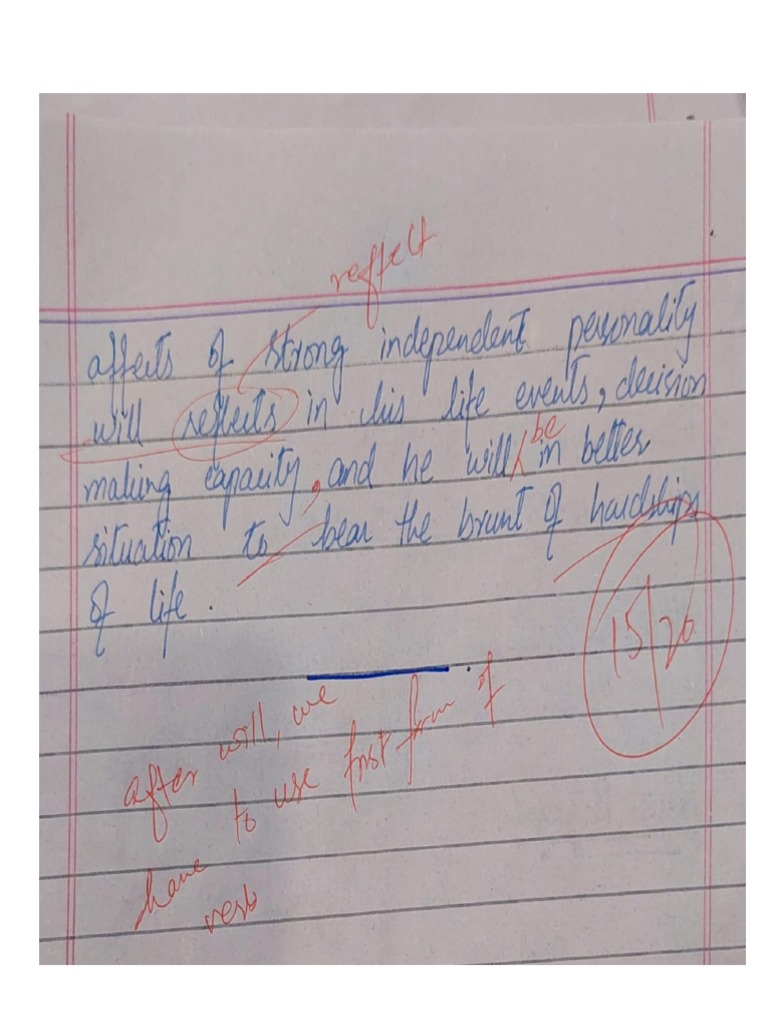 reflect
affects of strong independent personality
will reflects in his life events, decision
be
making capacity, and he will in better
situation to bear the brunt of hardships
of life.
15/20
after will, we
have to use first form of
verb